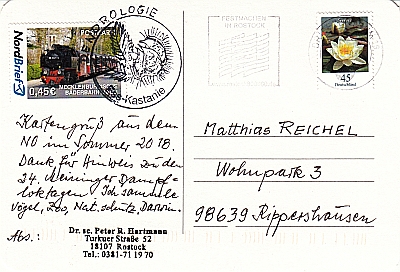 NordBrief
POSTKARTE
0,45€ MECKLENBURG
BÄDERBAHN
HYDROLOGIE
Ross-Kastanie
FESTMACHEN
IN ROSTOCK
45
Deutschland
Kartengruß aus dem
NO im Sommer 2018.
Dank für Hinweis zu den
24. Meininger Dampf-
loktagen. Ich sammle
Vögel, Zoo, Nat.schutz, Darwin.
Matthias REICHEL
Wohnpark 3
98639 Rippershausen
Abs.:
Dr. sc. Peter R. Hartmann
Turkuer Straße 52
18107 Rostock
Tel.: 0381-71 19 70